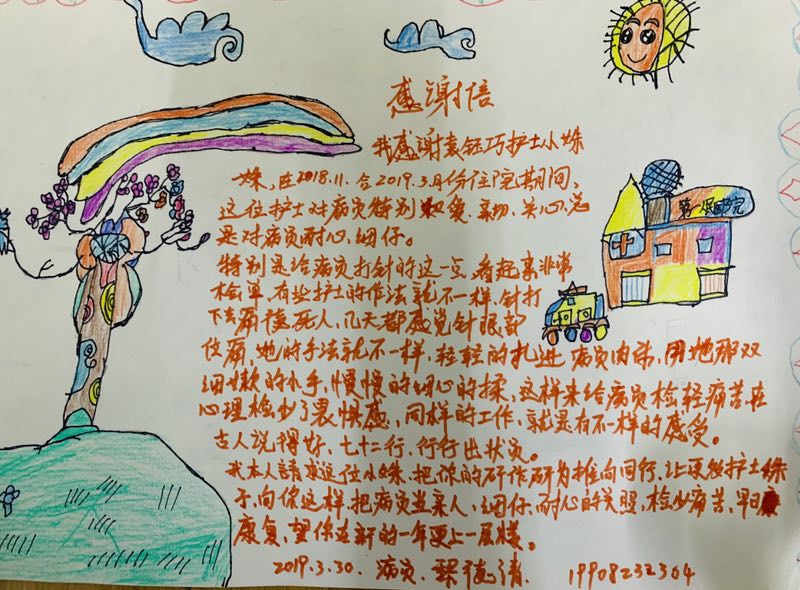 感谢信
我感谢袁钰巧护士小妹
妹,在2018.11.合2019.3月份住院期间,
这位护士对病员特别和爱、亲切、关心,总
是对病员耐心、细仔。
特别是给病员打针的这一点,看起来非常
检单,有些护士的作法就不一样,针打
下去痛得死人,几天都感觉针眼部
位痛,她的手法就不一样,轻轻的扎进病员肉里,用她那双
细嫩的小手,慢慢的细心的揉,这样来给病员检轻痛苦,在
心理检少了畏惧感,同样的工作,就是有不一样的感受。
古人说得好,七十二行,行行出状员。
我本人請求这位小妹,把你的研作研为推向同行,让更多护士妹
子,向你这样,把病员当亲人,细仔、耐心的关照,检少痛苦,早日康
康复,望你在新的一年更上一层楼。
2019.3.30. 病员. 19908232364
第一医院